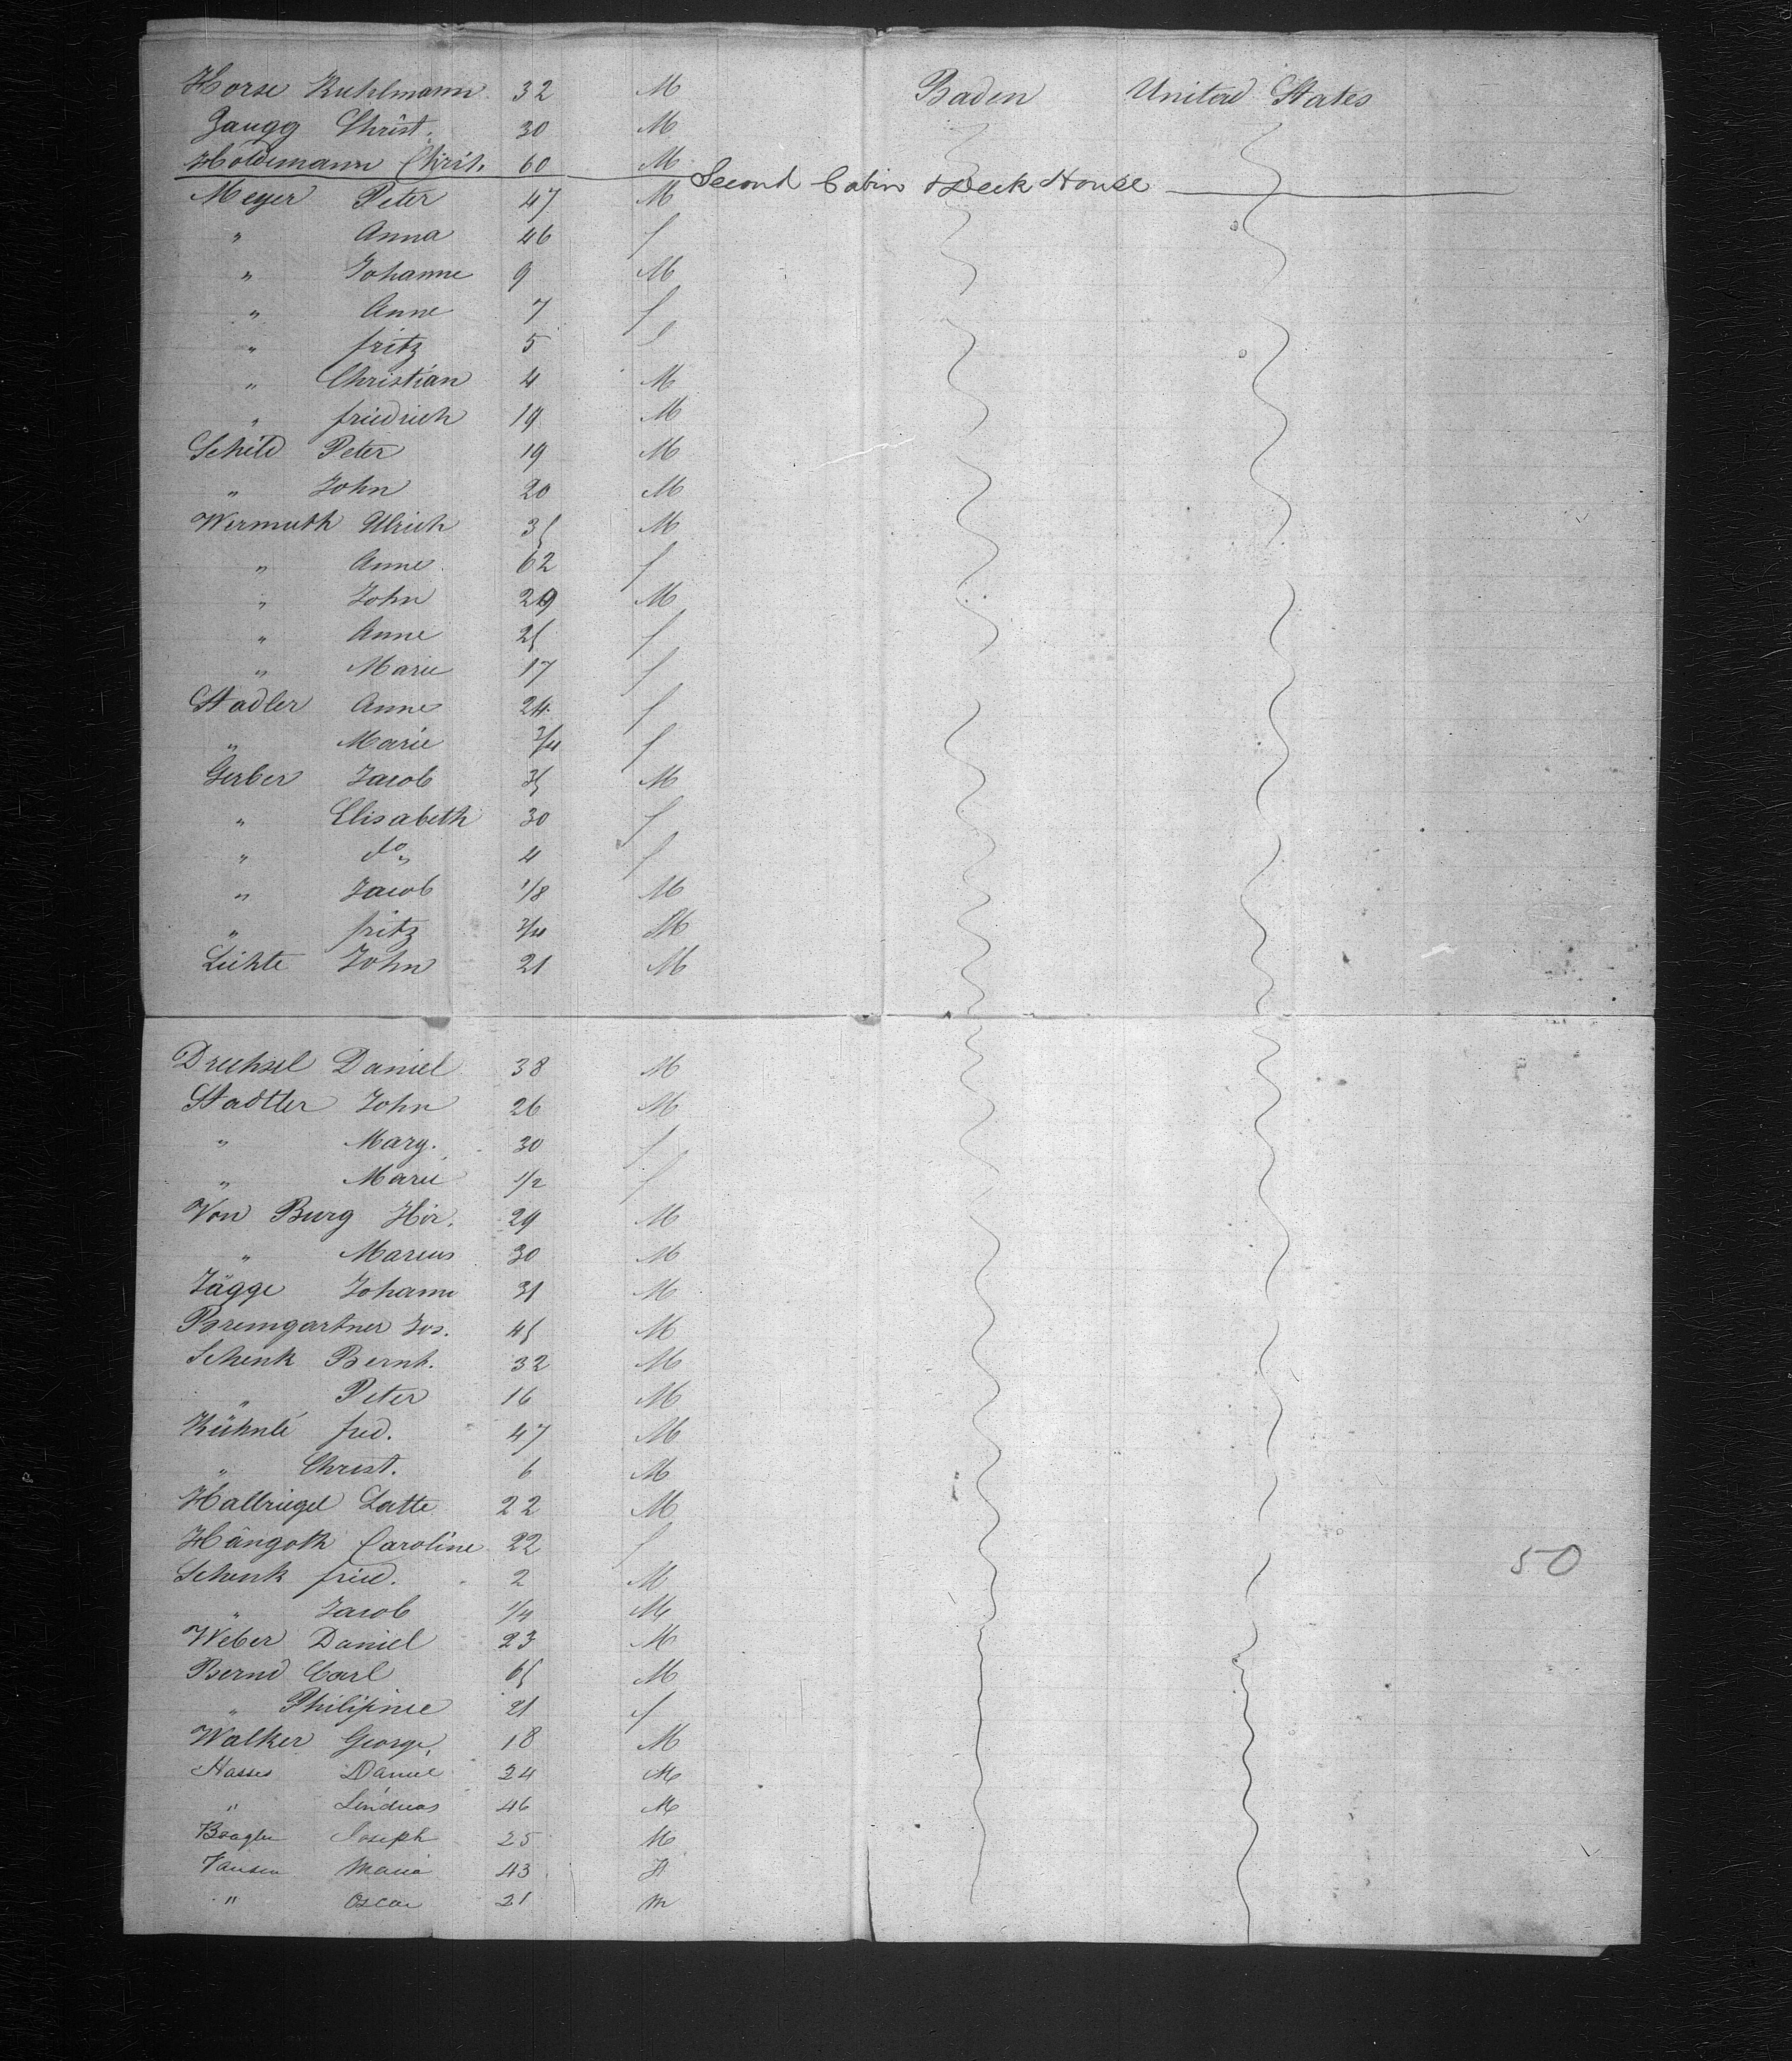 Horse Kuhlmann 32 M Baden United States
Zaugg Christ. 30 M
Holdimann Christ. 60 M
Second Cabin & Deck House
Meyer Peter 47 M
" Anna 46 f
" Johanne 9 M
" Anne 7 f
" fritz 5 f
" Christian 4 M
" friedrich 19 M
Schild Peter 19 M
" John 20 M
Wermuth Ulrich 35 M
" Anne 62 f
" John 29 M
" Anne 25 f
" Marie 17 f
Stadler Anne 24 f
" Marie 3/4 f
Gerber Jacob 35 M
" Elisabeth 30 f
" do " 4 f
" Jacob 1/8 M
" fritz 3/4 M
Liechte John 21 M
Drechsel Daniel 38 M
Stadtler John 26 M
" Marg. 30 f
" Marie 1/2 f
Von Burg Hir. 29 M
" Marcus 30 M
Jägge Johann 31 M
Bremgartner Jos. 45 M
Schenk Bernh. 32 M
" Peter 16 M
Kühnle fred. 47 M
" Christ. 6 M
Halbriegel Latte 22 M
Hängoth Caroline 22 f
50
Schenk fried. 2 M
" Jacob 1/4 M
Weber Daniel 23 M
Bernd Carl 65 M
" Philipine 21 f
Walker George 18 M
Hasses Daniel 24 M
" 46 M
Joseph 25 M
Jansen Maria 43 F
" Oscar 21 m